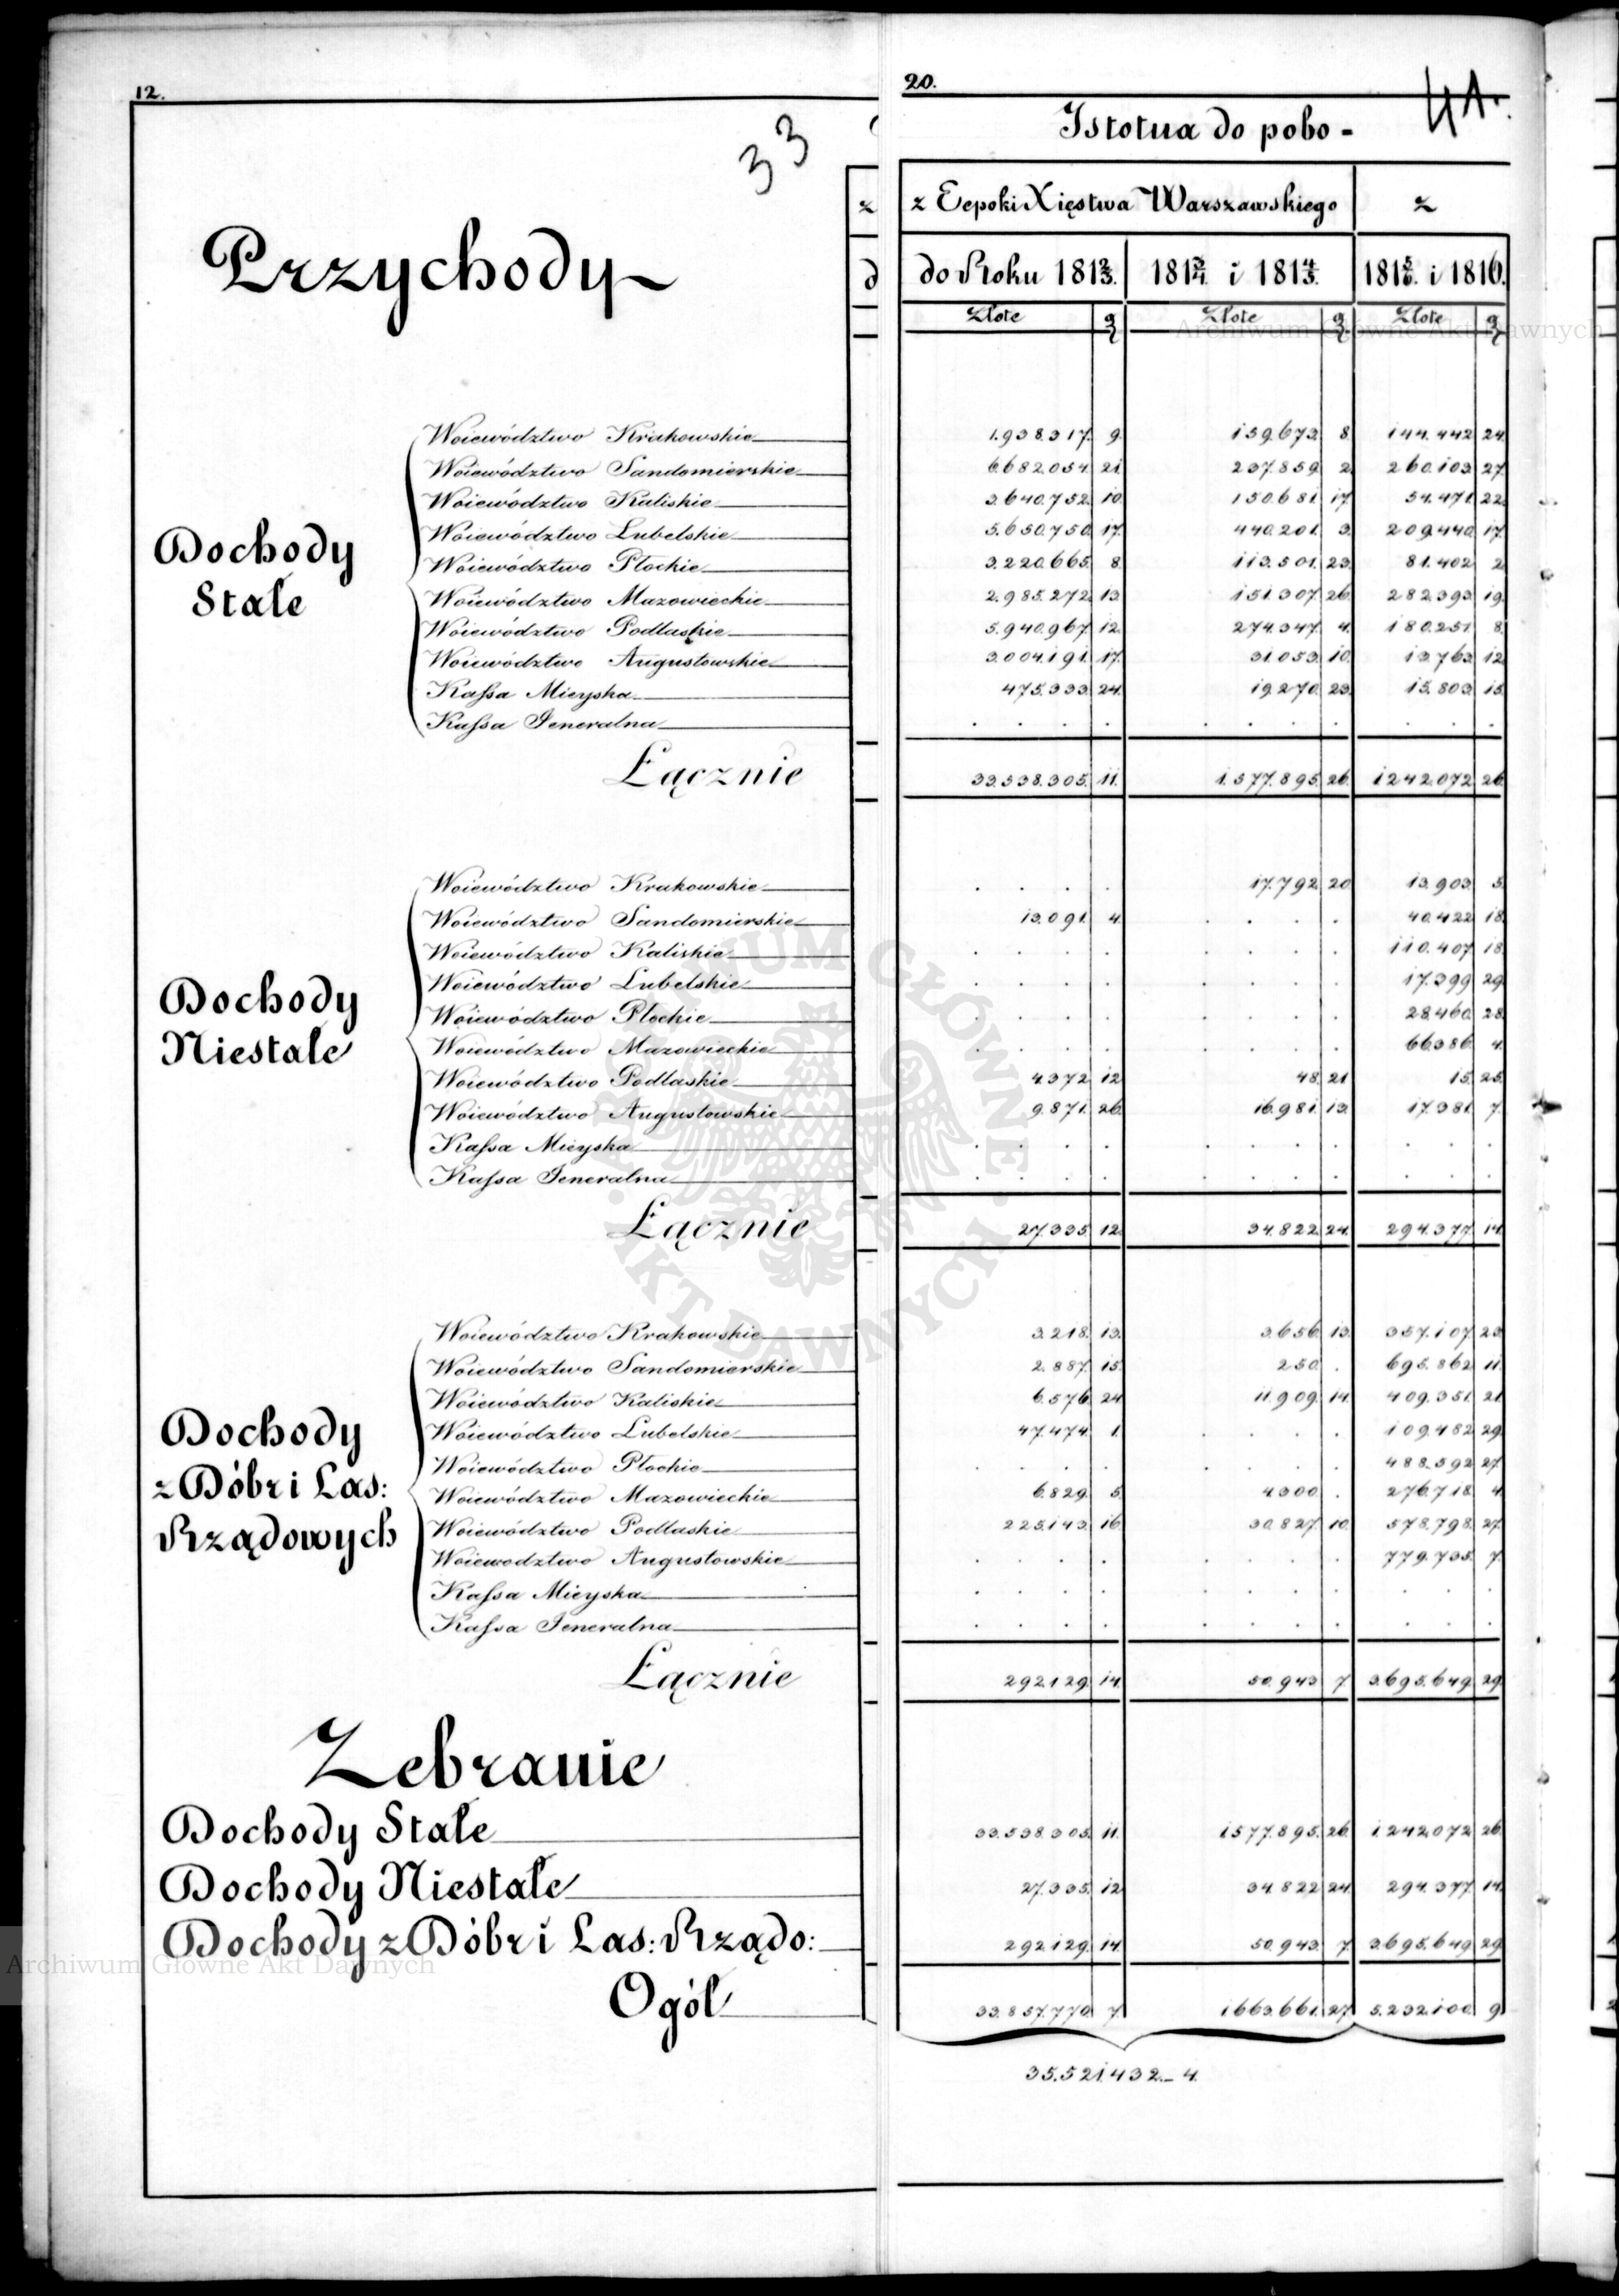 12.
20.
33
41.
Istotna do pobo-
z
z Eepoki Xięstwa Warszawskiego
z
Przychody
d
do Roku 181 2/3.
181 3/4 i 181 4/5.
181 5/6. i 1816.
Złote g Złote g Złote g
Dochody
Stałe
Woiewództwo Krakowskie 1.938.317. 9. 159.673. 8. 144.442 24.
Woiewództwo Sandomierskie 6.682.054. 21. 237.859. 2. 260.103 27.
Woiewództwo Kaliskie 3.640.752. 10. 150.681. 17. 54.471. 22.
Woiewództwo Lubelskie 5.650.750. 17. 440.201. 3. 209.440. 17.
Woiewództwo Płockie 3.220.665. 8. 113.501. 23. 81.402 2.
Woiewództwo Mazowieckie 2.985.272. 13. 151.307. 26. 282.393. 19.
Woiewództwo Podlaskie 5.940.967. 12. 274.347. 4. 180.251. 8.
Woiewództwo Augustowskie 3.004.191. 17. 31.053. 10. 13.763. 12.
Kassa Mieyska 475.333. 24. 19.270. 23. 15.803. 15.
Kassa Jeneralna . . . . . . . . . . .
Łącznie 33.538.305. 11. 1.577.895. 26. 1242.072. 26.
Dochody
Niestałe
Woiewództwo Krakowskie . . . . 17.792. 20. 13.903. 5.
Woiewództwo Sandomierskie 13.091. 4. . . . . 40.422 18.
Woiewództwo Kaliskie . . . . . . . . 110.407 18.
Woiewództwo Lubelskie . . . . . . . . 17.399 29.
Woiewództwo Płockie . . . . . . . . 28.460. 28.
Woiewództwo Mazowieckie . . . . . . . . 66386 4.
Woiewództwo Podlaskie 4.372. 12. 48. 21. 15. 25.
Woiewództwo Augustowskie 9.871. 26. 16.981. 13. 17.381. 7.
Kassa Mieyska . . . . . . . . . . .
Kassa Jeneralna . . . . . . . . . . .
Łącznie 27.335. 12. 34.822. 24. 294.377. 14.
Dochody
z Dóbr i Las:
Rządowych
Woiewództwo Krakowskie 3.218. 13. 3.656. 13. 357.107 23.
Woiewództwo Sandomierskie 2.887. 15. 250 . 695.862 11.
Woiewództwo Kaliskie 6.576. 24. 11.909. 14. 409.351. 21.
Woiewództwo Lubelskie 47.474. 1. . . . . 109.482 29.
Woiewództwo Płockie . . . . . . . . 488.592 27.
Woiewództwo Mazowieckie 6.829. 5. 4300 . 276.718. 4.
Woiewództwo Podlaskie 225.143. 16. 30.827. 10. 578.798. 27.
Woiewodztwo Augustowskie . . . . . . . . 779.735. 7.
Kassa Mieyska . . . . . . . . . . .
Kassa Jeneralna . . . . . . . . . . .
Łącznie 292.129. 14. 50.943 7. 3.695.649. 29.
Zebranie
Dochody Stałe 33.538.305. 11. 1.577.895. 26. 1.242.072 26.
Dochody Niestałe 27.335. 12. 34.822 24. 294.377. 14.
Dochody z Dóbr i Las: Rządo: 292.129. 14. 50.943. 7. 3.695.649 29.
Ogół 33.857.770. 7. 1.663.661. 27. 5.232.100. 9.
35.521.432.– 4.
Archiwum Główne Akt Dawnych
ARCHIWUM GŁÓWNE AKT DAWNYCH
Archiwum Główne Akt Dawnych